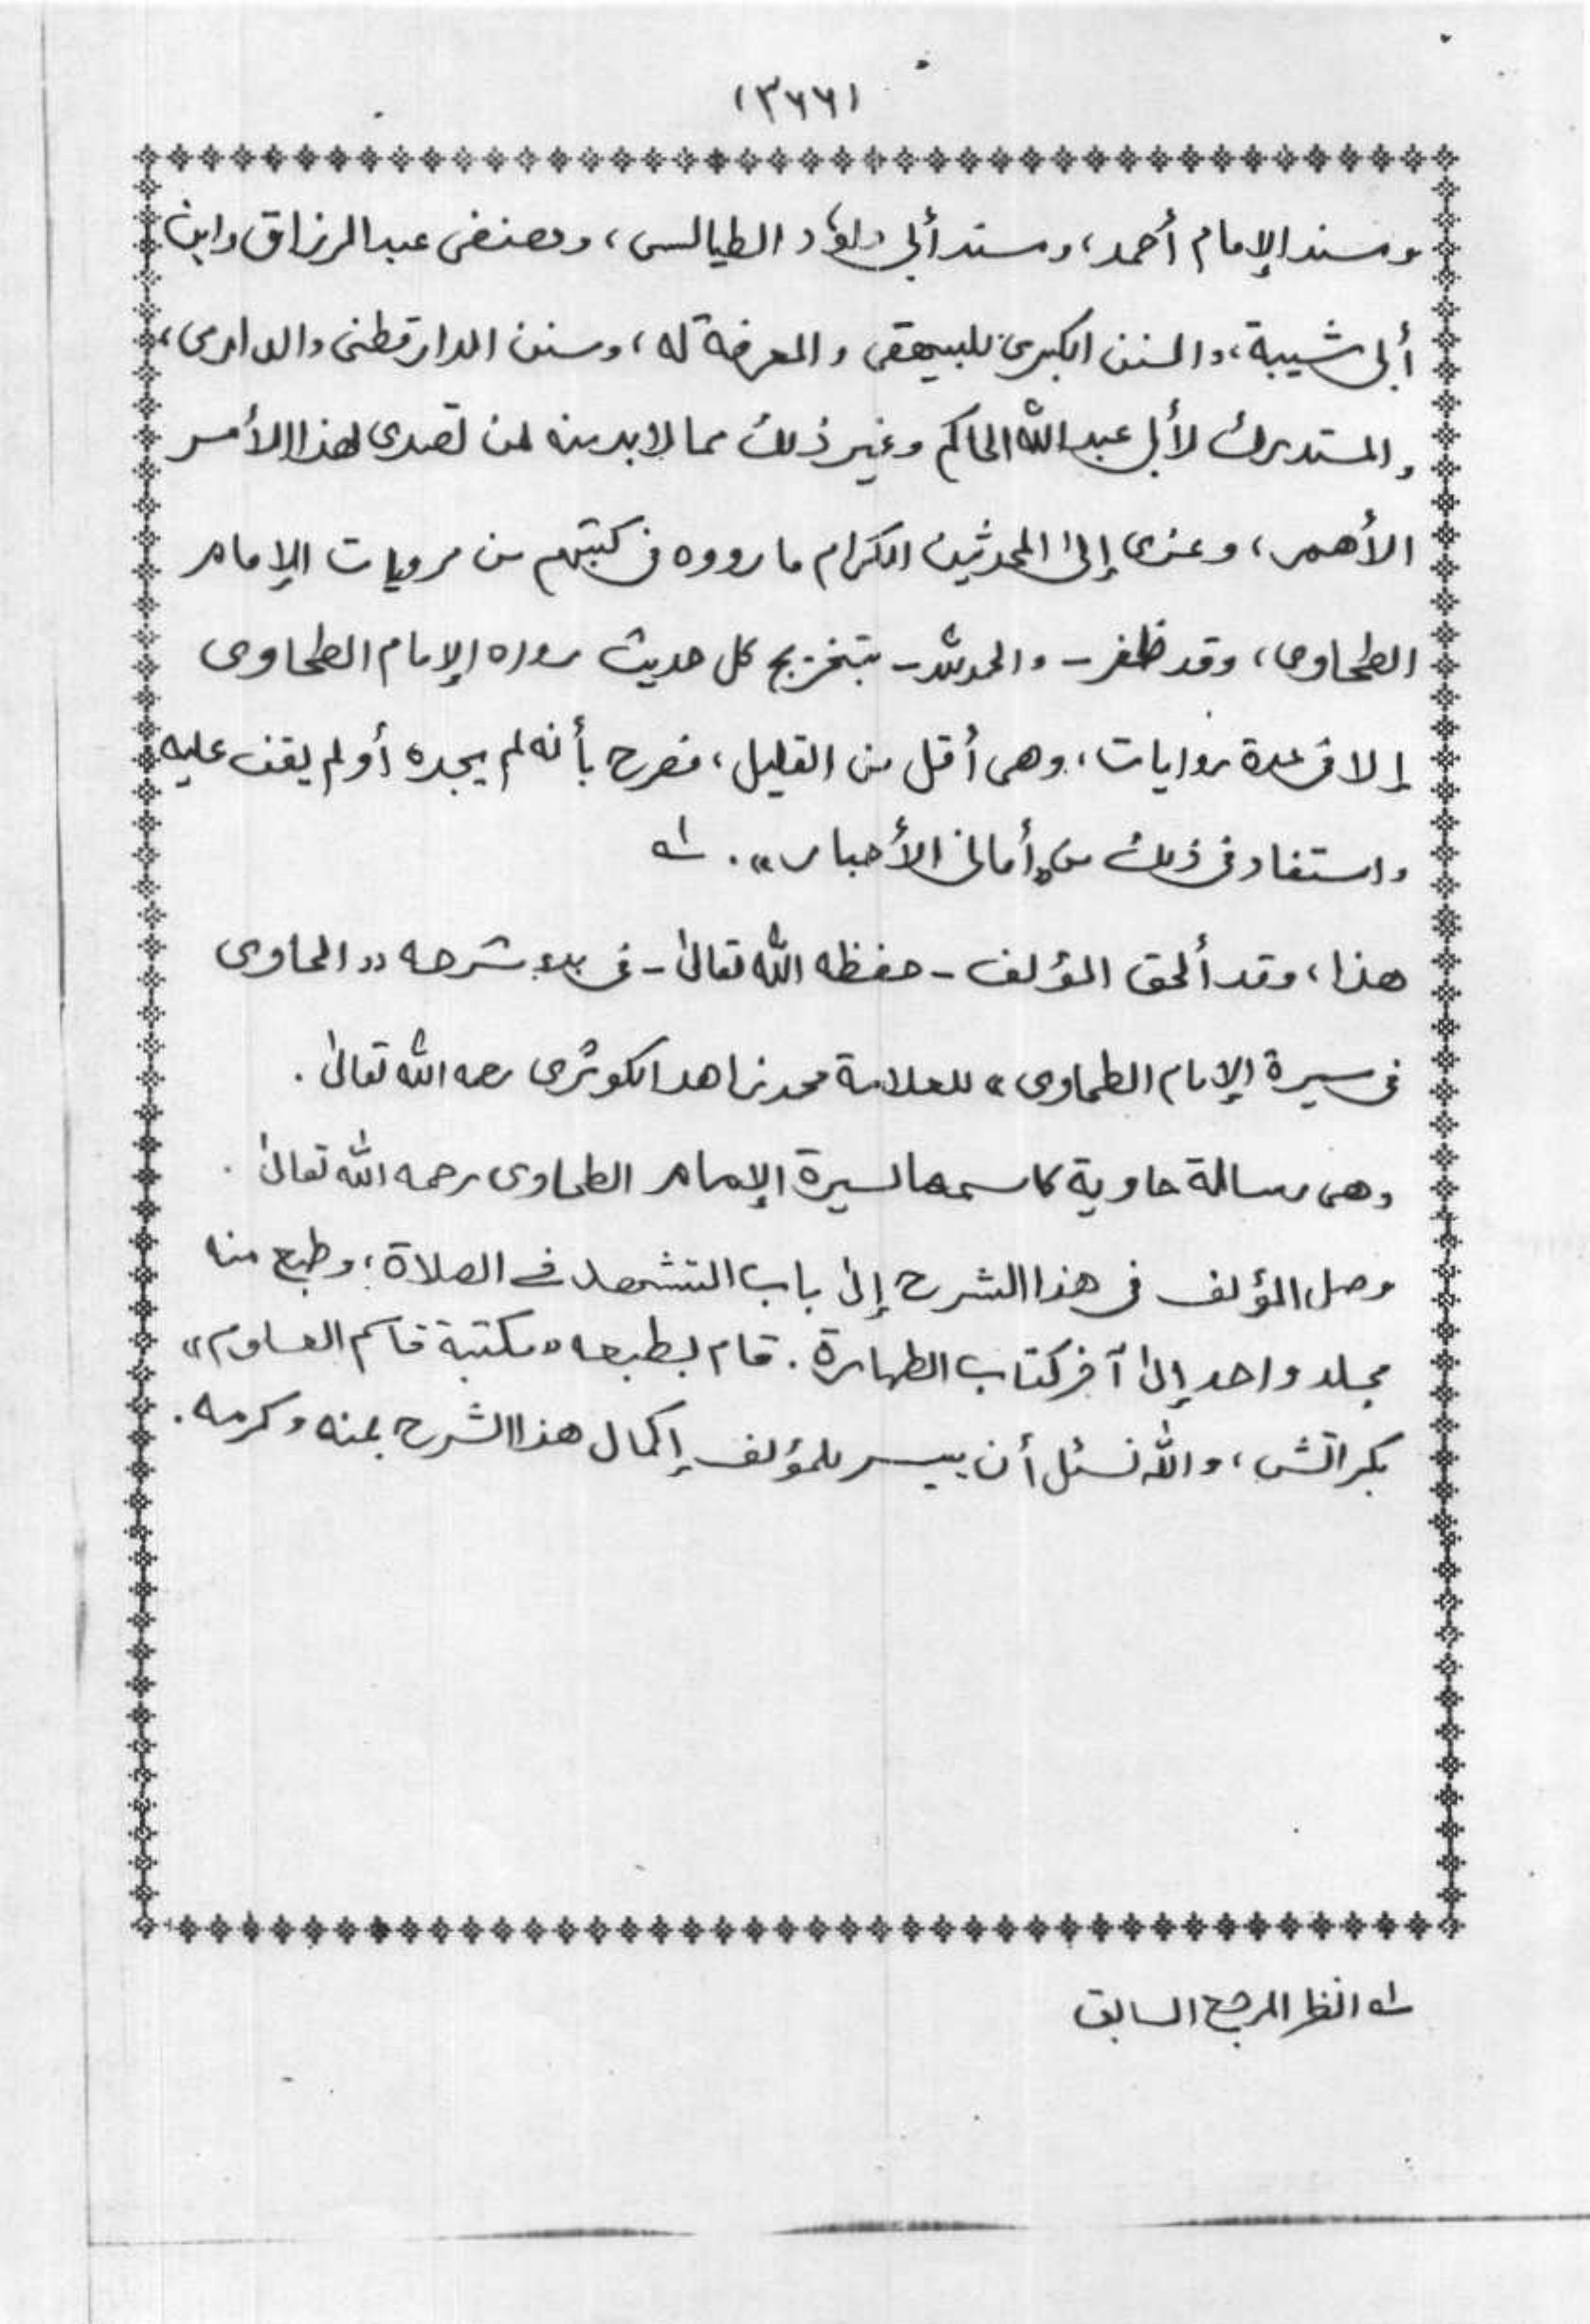 (٣٦٦)
ومسند الإمام أحمد، ومسند أبي داؤد الطيالسى، ومصنفى عبد الرزاق وابن
أبي شيبة، والسنن الكبرى للبيهقى والمعرفة له، وسنن الدارقطنى والدارمى،
والمستدرك لأبي عبد الله الحاكم وغير ذلك مما لا بد منه لمن تصدى لهذا الأمر
الأهمر، وعزى إلى المحدثين الكرام ما رووه فى كتبهم من مرويات الإمام
الطحاوى، وقد ظفر - والحمد لله - بتخريج كل حديث رواه الإمام الطحاوى
إلا فى عدة روايات، وهى أقل من القليل، فصرح بأنه لم يجده أو لم يقف عليه
واستفاد فى ذلك من «أمانى الأحبار». له
هذا، وقد ألحق المؤلف - حفظه الله تعالى - فى بدء شرحه «الحاوى
فى سيرة الإمام الطحاوى» للعلامة محمد زاهد الكوثرى رحمه الله تعالى.
وهى رسالة حاوية كاسمها لسيرة الإمام الطحاوى رحمه الله تعالى.
وصل المؤلف فى هذا الشرح إلى باب التشهد فى الصلاة، وطبع منه
مجلد واحد إلى آخر كتاب الطهارة. قام بطبعه «مكتبة قاسم العلوم»
بكراتشى، والله نسئل أن ييسر للمؤلف إكمال هذا الشرح بمنه وكرمه.
له انظر المرجع السابق